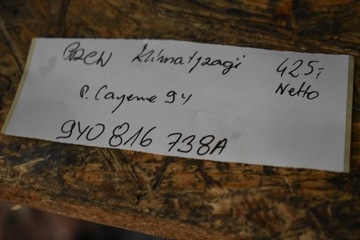 Przew klimatyzacji 425,-
Netto
P. Cayenne 9Y
9Y0 816 738A